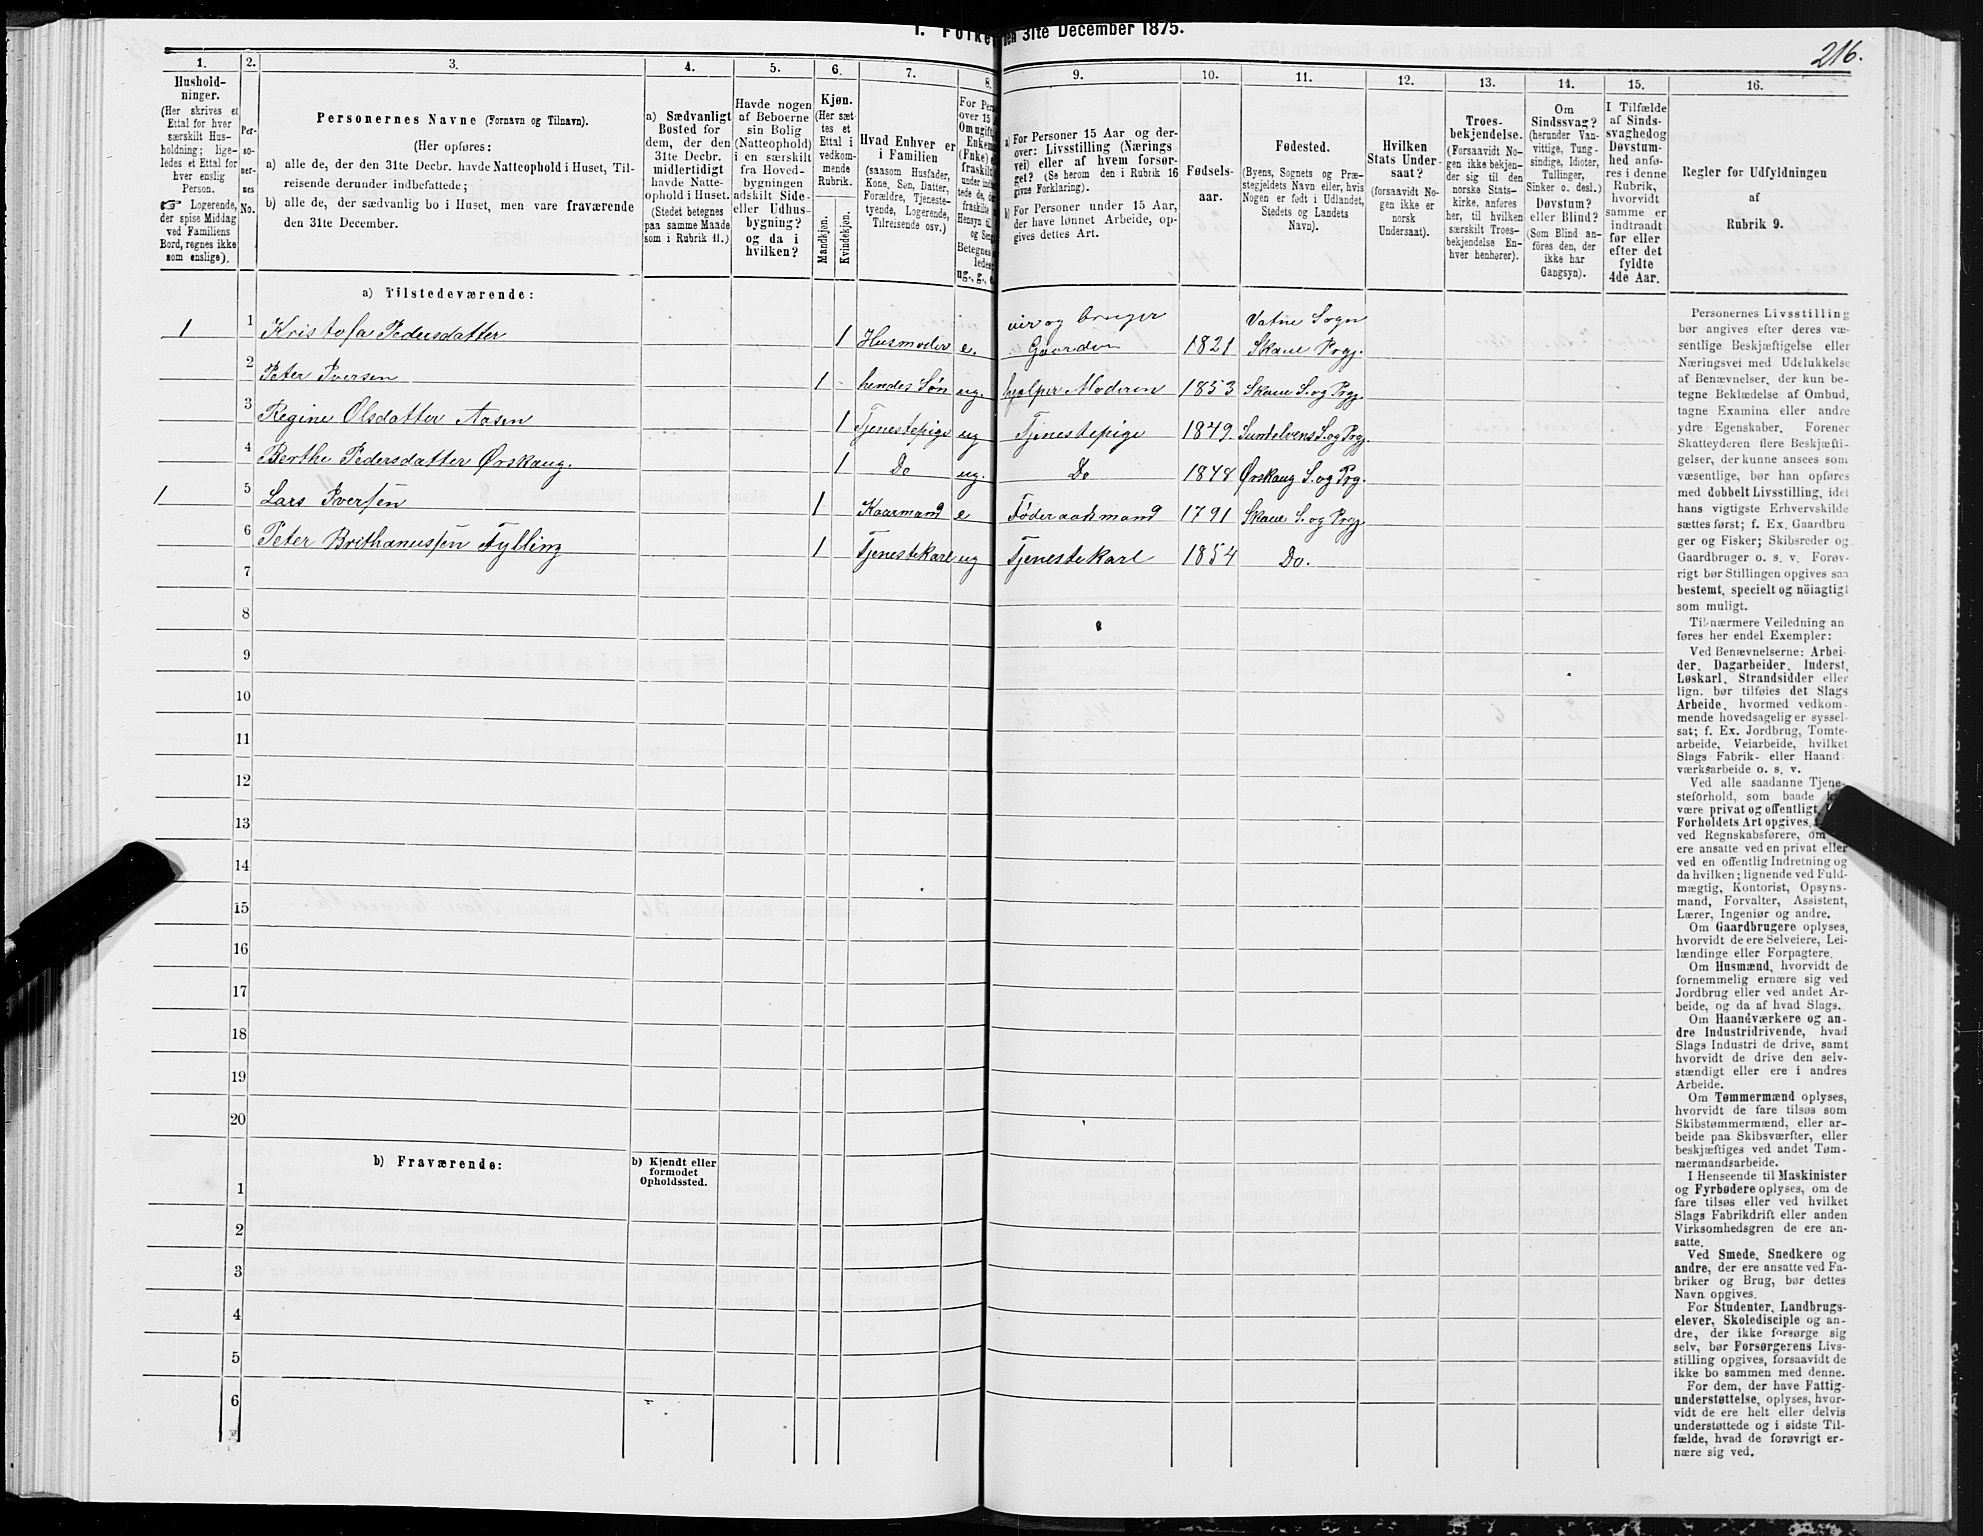 1. Folke
den 31te December 1875.
216.
1.
2.
3.
4.
5.
6.
7.
8.
9.
10.
11.
12.
13.
14.
15.
16.
Hushold-
ninger.
(Her skrives et
Ettal for hver
særskilt Hus-
holdning; lige-
ledes et Ettal for
hver enslig
Person.
☞ Logerende,
der spise Middag
ved Familiens
Bord, regnes ikke
som enslige).
Per-
so-
ner-
nes
No.
Personernes Navne (Fornavn og Tilnavn).
(Her opføres:
a) alle de, der den 31te Decbr. havde Natteophold i Huset, Til-
reisende derunder indbefattede;
b) alle de, der sædvanlig bo i Huset, men vare fraværende
den 31te December.
a) Sædvanligt
Bosted for
dem, der den
31te Decbr.
midlertidigt
havde Natte-
ophold i Huset.
(Stedet betegnes
paa samme Maade
som i Rubrik 11.)
Havde nogen
af Beboerne
sin Bolig
(Natteophold)
i en særskilt
fra Hoved-
bygningen
adskilt Side-
eller Udhus-
bygning?
og da i
hvilken?
Kjøn.
(Her sæt-
tes et
Ettal i
vedkom-
mende
Rubrik.
Mandkjøn.
Kvindekjøn.
Hvad Enhver er
i Familien
(saasom Husfader,
Kone, Søn, Datter,
Forældre, Tjeneste-
tyende, Logerende,
Tilreisende osv.)
For Pers
over 15
Om ugift
Enkem
(Fnke)
fraskilt
under indbe
tede de, de
fraskilte
Hensyn til
og Sen
Betegnes
ledes
ug., g., e.
a) For Personer 15 Aar og der-
over: Livsstilling (Nærings
vei) eller af hvem forsør-
get? (Se herom den i Rubrik 16
givne Forklaring).
b) For Personer under 15 Aar,
der have lønnet Arbeide, op-
gives dettes Art.
Fødsels-
aar.
Fødested.
(Byens, Sognets og Præ-
stegjeldets Navn eller, hvis
Nogen er født i Udlandet,
Stedets og Landets
Navn).
Hvilken
Stats Under-
saat?
(forsaavidt No-
gen ikke er
norsk
Undersaat).
Troes-
bekjendelse.
(Forsaavidt No-
gen ikke bekjen-
der sig til den
norske Stats-
kirke, anføres
her, til hvilken
særskilt Troes-
bekjendelse En-
hver henhører).
Om
Sindssvag?
(herunder Van-
vittige, Tung-
sindige, Idioter,
Tullinger,
Sinker o. desl.)
Døvstum?
eller Blind?
(Som Blind an-
føres den, der
ikke har
Gangsyn).
I Tilfælde
af Sinds-
svaghed og
Døvstum-
hed anfø-
res i denne
Rubrik,
hvorvidt
samme er
indtraadt
før eller
efter det
fyldte
4de Aar.
Regler for Udfyldningen
af
Rubrik 9.
a) Tilstedeværende:
1 1 Kristofa Pedersdatter 1 Husmoder e. eier og bruger Gaarden 1821 Vatne Sogn Skaue Prgj.
2 Peter Iversen 1 hendes Søn ug. hjælper Moderen 1853 Skaue S. og Prgj.
3 Regine Olsdatter Aasen 1 Tjenestepige ug Tjenestepige 1849. Sundelvens S. og Prg.
4 Berthe Pedersdatter Ørskaug. 1 Do ug. Do 1848 Ørskaug S. og Prg.
1 5 Lars Iversen 1 Kaarmand e Føderaadsmand 1791 Skaue S. og Prgj
6 Peter Brithanussen Fylling 1 Tjenestekarl ug Tjenestekarl 1854 Do.
7
8
9
10
11
12
13
14
15
16
17
18
19
20
b) Fraværende:
b) Kjendt eller
formodet
Opholdssted.
1
2
3
4
5
6
Personernes Livsstilling
bør angives efter deres væ-
sentlige Beskjæftigelse eller
Næringsvei med Udelukkelse
af Benævnelser, der kun be-
tegne Beklædelse af Ombud,
tagne Examina eller andre
ydre Egenskaber. Forener
Skatteyderen flere Beskjæfti-
gelser, der kunne ansees som
væsentlige, bør han opføres
med dobbelt Livsstilling, idet
hans vigtigste Erhvervskilde
sættes først; f. Ex. Gaardbru-
ger og Fisker; Skibsreder og
Gaardbruger o. s. v. Forøv-
rigt bør Stillingen opgives saa
bestemt, specielt og nöiagtigt
som muligt.
Til nærmere Veiledning an
føres her endel Exempler:
Ved Benævnelserne: Arbei-
der, Dagarbeider, Inderst,
Løskarl, Strandsidder eller
lign. bør tilføies det Slags
Arbeide, hvormed vedkom-
mende hovedsagelig er syssel-
sat; f. Ex. Jordbrug, Tomte-
arbeide, Veiarbeide, hvilket
Slags Fabrik- eller Haand-
værksarbeide o. s. v.
Ved alle saadanne Tjene-
steforhold, som baade
være privat og offentligt
Forholdets Art opgives,
ved Regnskabsførere, om
ere ansatte ved en privat eller
ved en offentlig Indretning og
da hvilken; lignende ved Fuld-
mægtig, Kontorist, Opsyns-
mand, Forvalter, Assistent,
Lærer, Ingeniør og andre.
Om Gaardbrugere oplyses,
hvorvidt de ere Selveiere, Lei-
lændinge eller Forpagtere.
Om Husmænd, hvorvidt de
fornemmelig ernære sig ved
Jordbrug eller ved andet Ar-
beide, og da af hvad Slags.
Om Haandværkere og an-
dre Industridrivende, hvad
Slags Industri de drive, samt
hvorvidt de drive den selv-
stændigt eller ere i andres
Arbeide.
Om Tømmermænd oplyses,
hvorvidt de fare tilsøs som
Skibstømmermænd, eller ar-
beide paa Skibsværfter, eller
beskjæftiges ved andet Tøm-
mermandsarbeide.
I Henseende til Maskinister
og Fyrbødere oplyses, om de
fare tilsøs eller ved hvilket
Slags Fabrikdrift eller anden
Virksomhedsgren de ere an-
satte.
Ved Smede, Snedkere og
andre, der ere ansatte ved Fa-
briker og Brug, bør dettes
Navn opgives.
For Studenter, Landbrugs-
elever, Skoledisciple og an-
dre, der ikke forsørge sig
selv, bør Forsørgerens Livs-
stilling opgives, forsaavidt de
ikke bo sammen med denne.
For dem, der have Fattig-
understøttelse, oplyses, hvor-
vidt de ere helt eller delvis
understøttede og i sidste Til-
fælde, hvad de forøvrigt er-
nære sig ved.